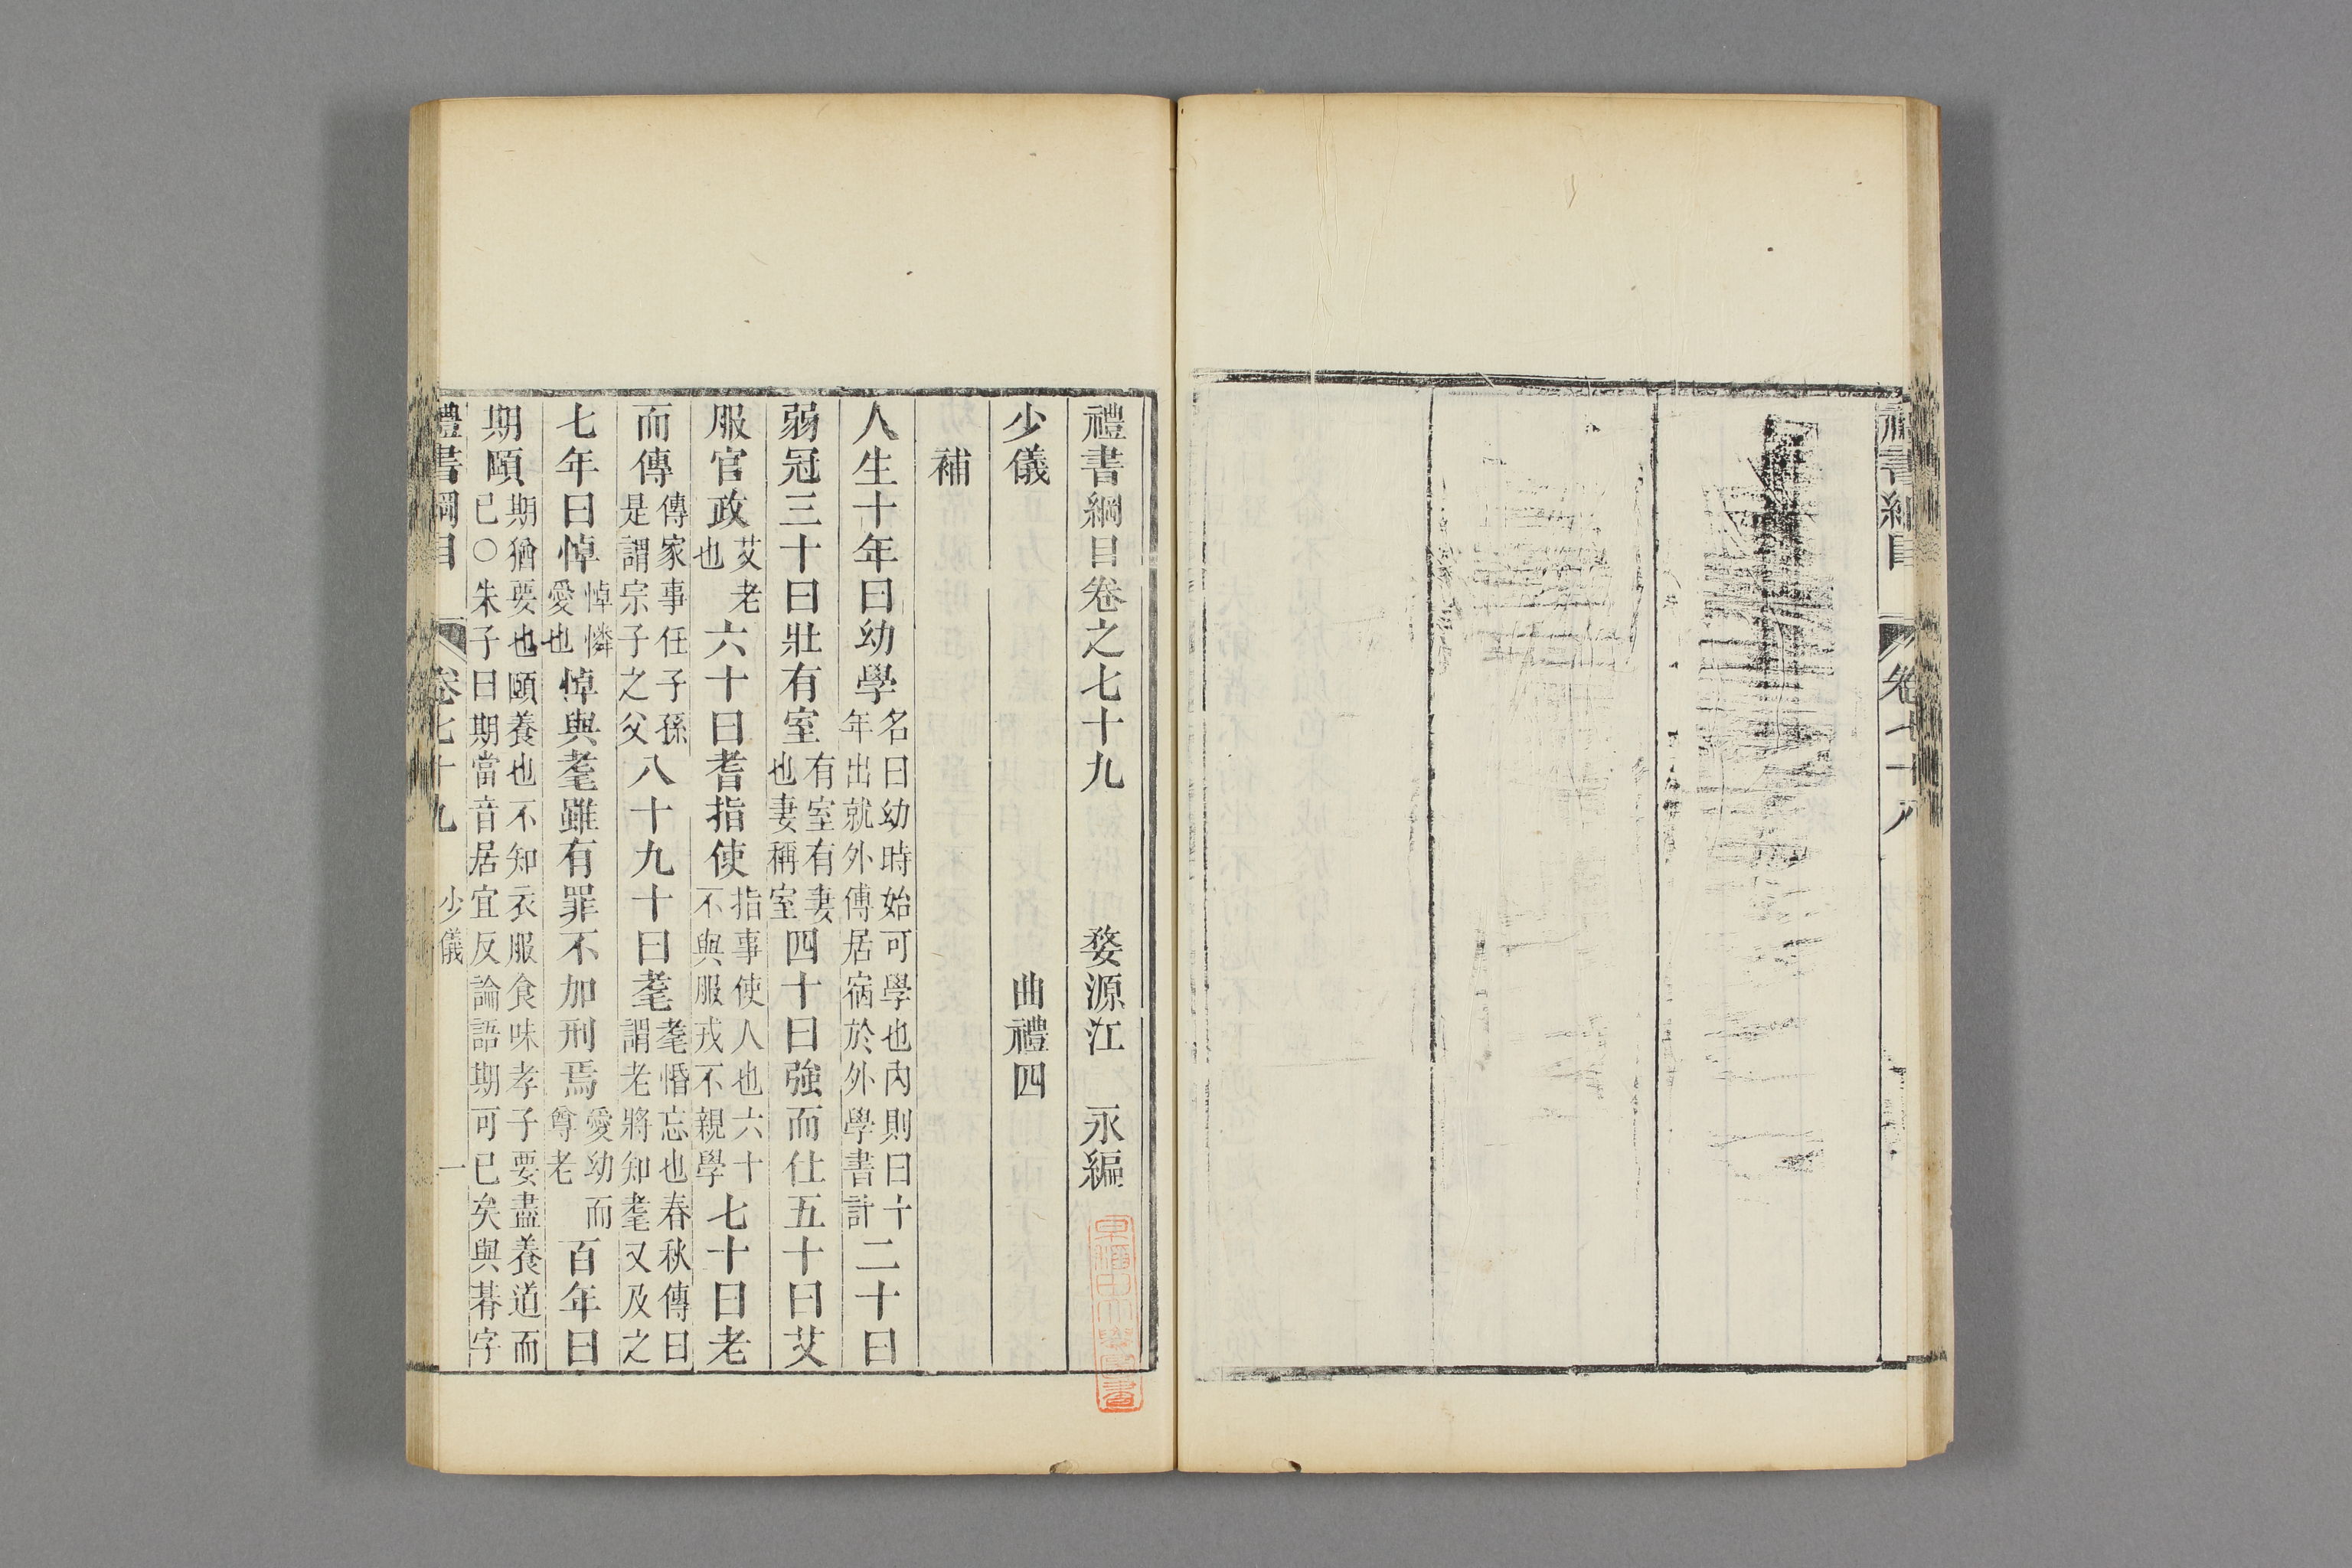 禮書綱目
卷七十八
禮書綱目卷之七十九　婺源江　永編
少儀　曲禮四
補
人生十年曰幼學名曰幼時始可學也內則曰十年出就外傅居宿於外學書計二十曰
弱冠三十曰壯有室有室有妻也妻稱室四十曰強而仕五十曰艾
服官政艾老也六十曰耆指使指事使人也六十不與服戎不親學七十曰老
而傳傳家事任子孫是謂宗子之父八十九十曰耄耄惛忘也春秋傳曰謂老將知耄又及之
七年曰悼悼憐愛也悼與耄雖有罪不加刑焉愛幼而尊老百年曰
期頤期猶要也頤養也不知衣服食味孝子要盡養道而已○朱子曰期當音居宜反論語期可已矣與朞字
禮書綱目　卷七十九　少儀　一